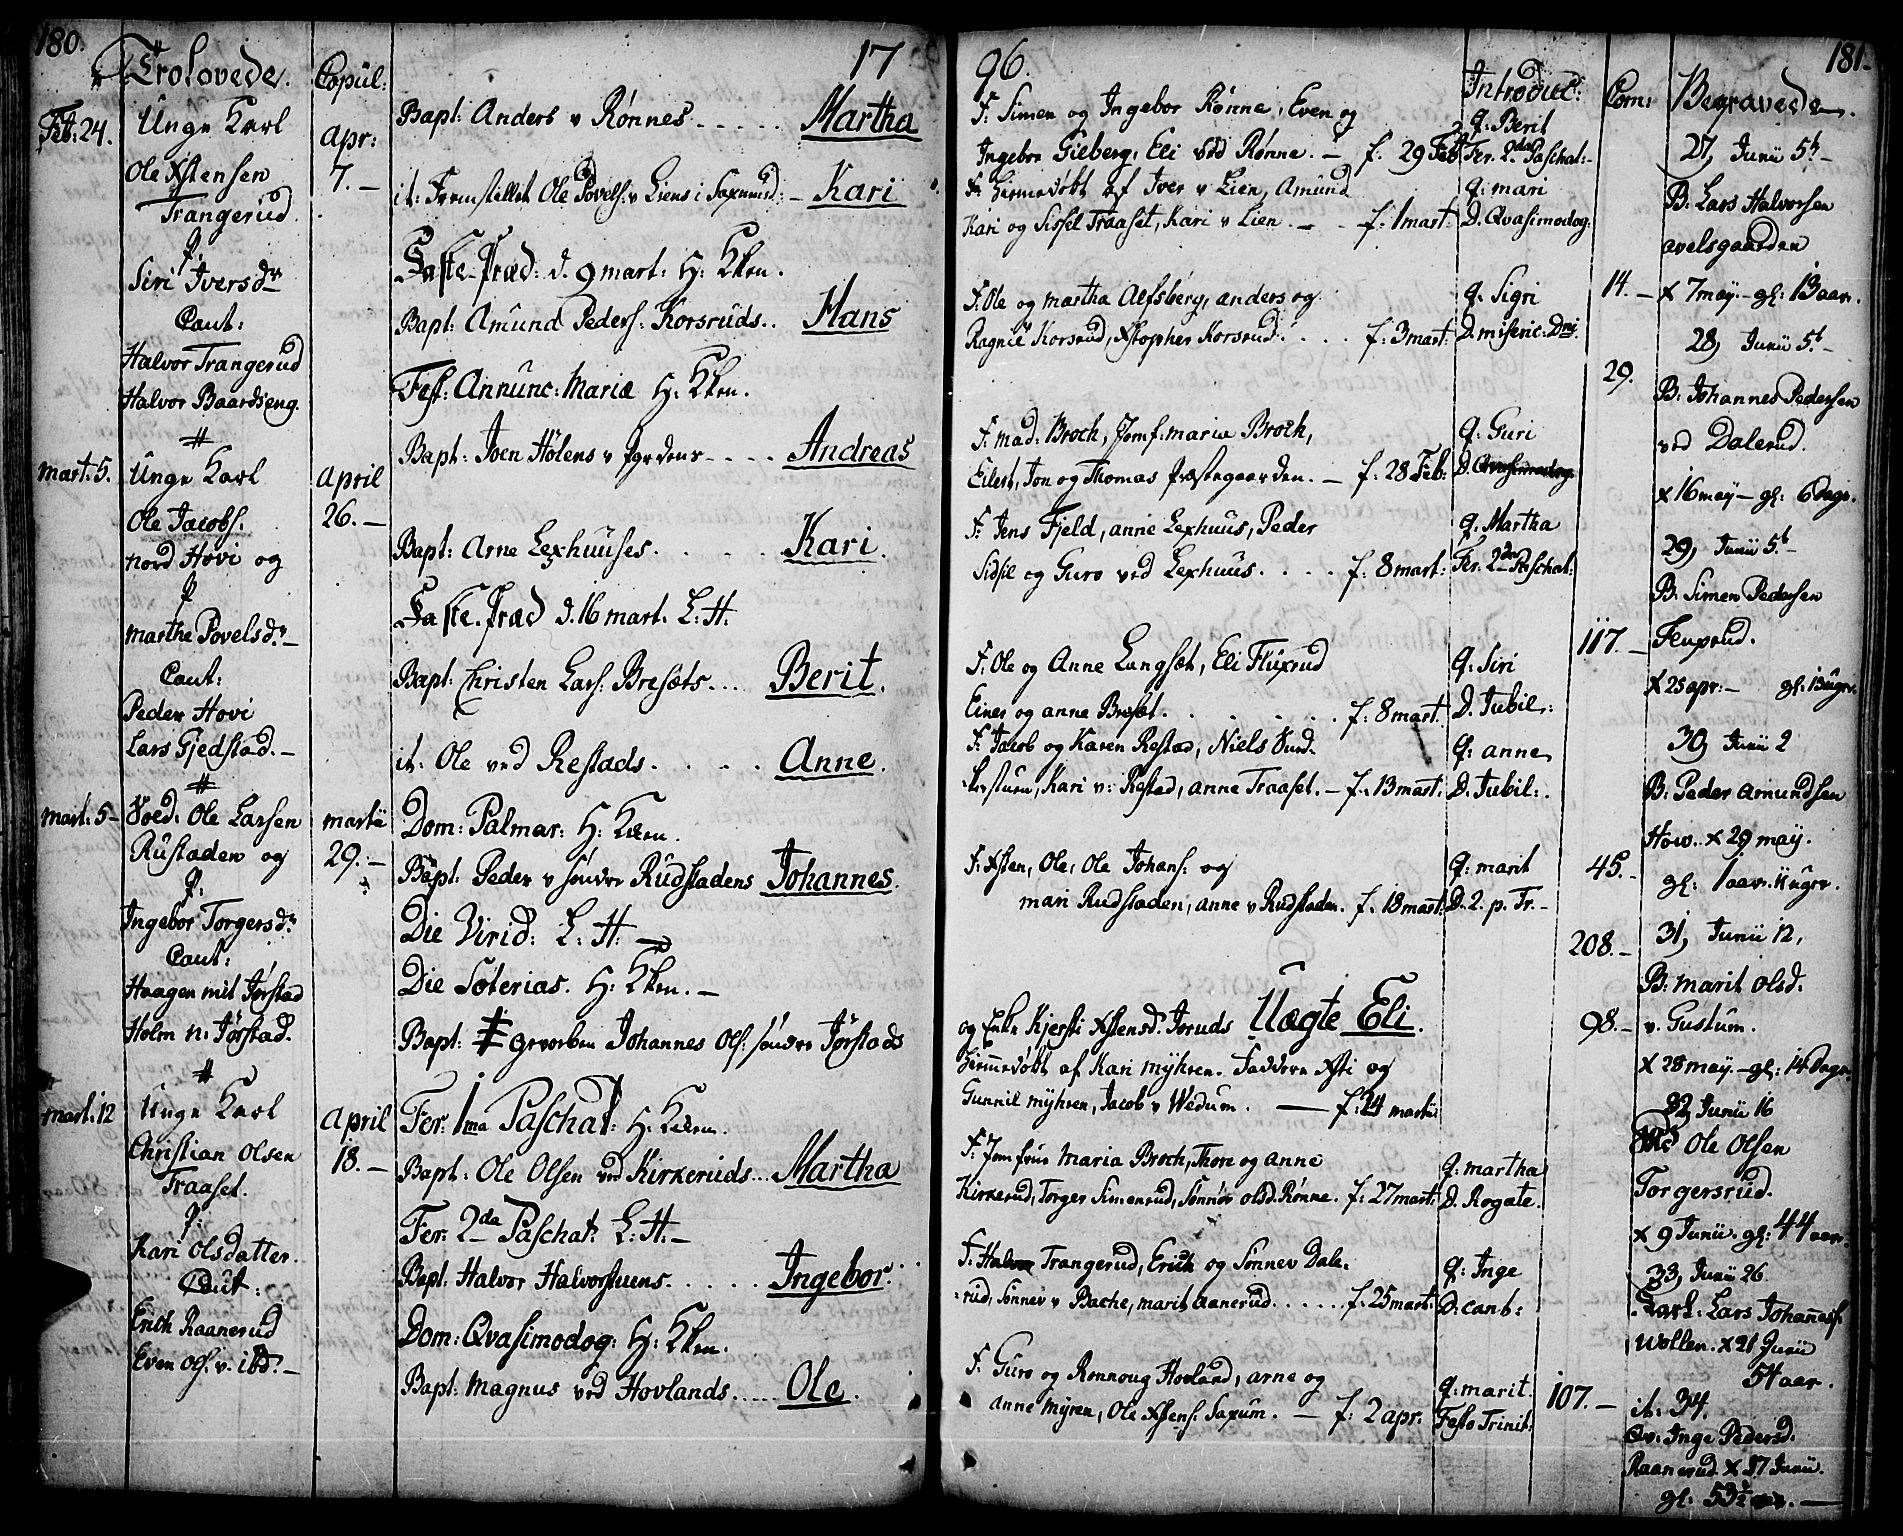 180.
Trolovede.
Feb: 24.
Unge Karl
Ole Xstensen
Trangerud
Siri Iversd:
Caut:
Halvor Trangerud
Halvor Baardseng
#
mart: 5.
Unge Karl
Ole Jacobs:
nord Hovi og
P
marthe Povelsd: –
Caut:
Peder Hovi
Lars Gjedstad. –
#
mart: 5 –
Ole Larsen
Rustaden og
P:
Ingebor Torgersd:
Caut:
Haagen mit Jørstad
Holm n: Jørstad.
#
mart: 12
Unge Karl
Christian Olsen
Traaset.
P:
Kari Olsdatter
Caut:
Erich Raanerud
Even ols: v. ibd: –
Copul:
apr:
7. –
April
26. –
martii
29. –
April
18. –
17
Bapt: Anders v Rønnes . . . . . Martha
it: Fremstillet Ole Povels: v Liens i Saxumd: – Kari
Faste-Præd: d. 9 mart: H: Kken.
Bapt: Amund Peders: Korsruds . . Hans
Fest: Annunc: Mariæ H: Kken.
Bapt: Joen Hølens v . . . . Andreas
Bapt: Arne Lexhuuses . . . . . Kari.
Faste-Præd d. 16 mart. L: H.
Bapt: Christen Lars: Bresæts . . . Berit.
it: Ole ved Restads . . . . Anne.
Dom: Palmar: H: Kken.
Bapt: Peder v søndre Rudstadens Johannes.
Die Virid: L: H: –
Die Soterias. H: Kken. –
Bapt: Johannes Ols: søndre Jørstads
Fer: 1ma Paschat: H: Kken.
Bapt: Ole Olsen ved Kirkeruds . . . Martha
Fer: 2da Paschat: L: H. –
Bapt: Halvor Halvorstuens . . . . . Ingebor.
Dom: Qvasimodog: H: Kken.
Bapt: Magnus ved Hovlands . . . . . Ole.
96.
F: Simen og Ingebor Rønne, Even og
Ingebor Gieberg, Eli ved Rønne. – f: 29 Feb:
F: Hiemedøbt af Iver v Lien, Amund
Kari og Sissel Traaset, Kari v Lien . – . f: 1 mart:
F: Ole og martha Alfsberg, anders og
Ragnil Korsrud, Xstopher Korsrud. . . . . f: 3 mart:
F: mad: Broch, Jomf: maria Broch,
Eilert, Jon og Thomas Præstegaarden. – f: 28 Feb:
F: Jens Fjeld, anne Lexhuus, Peder
Sidsil og Guro ved Lexhuus . . . . f: 8 mart:
F: Ole og Anne Langsæt, Eli Fluxrud
Einer og anne Bresæt . . . . . . f: 8 mart.
F: Jacob og Karen Restad, Niels Kari v: Restad, anne Traaset. – f: 13 mart:
F: Xsten, Ole, Ole Johans: og
mari Rudstaden, anne v Rudstaden. f: 18 mart:
og Enke Kjersti Xstensd: Joruds Uægte Eli.
Hiemedøbt af Kari myhren. Faddere Xsti og
Gunnil myhren, Jacob v Wedum. — f: 24 martii
F: Jomfrue Maria Broch, Thore og anne
Kirkerud, Torger Simenrud, Sønnøv olsd. Rønne. f: 27 mart:
F: Halvor Trangerud, Erich og Sønnev Dale-
rud, Sønnev v Bache, marit aanerud . . . . . f: 25 mart:
F: Guro og Rønnoug Hovland, arne og
anne myren, Ole Xstens: Saxum. – f: 2 apr.
Introduc:
q: Berit
Fer. 2da Paschat:
q: mari
D. Qvasimodog:
q: Sigri
D. miseric: Dni:
q: Guri
D. Qvasimodog
q: Martha
Fer. 2da Paschat:
q: Siri
D. Jubil:
q: anne
D. Jubil:
q: marit
D. 2. p. Tr. –
q: martha
D. Rogate.
q: Inge
D: cant:
q: marit.
Festo Trinit:
Com:
14. –
29.
117. –
45. –
208. –
98. –
107. –
181.
Begravede.
27, Junii 5t –
B: Lars Halvorsen
avelsgaarden
x 7 may – gl: 13 aar.
28, Junii 5t –
B: Johannes Pedersen
ved Dalerud.
x 16 may – gl: 6 dage.
29, Junii 5t –
B: Simen Pedersen
x 25 apr: – gl: 13 ugr.
30, Junii 2
B: Peder Amundsen
How. x 29 may.
gl: 1 aar. ugr.
31, Junii 12,
B: marit olsd:
v. Gustum.
x 28 may. – gl: 14 dage.
32, Junii 16
Ole Olsen
Torgersrud.
x 9 Junii. gl: 44 aar.
33, Junii 26
Karl: Lars Johaness:
Wollen. x 21 Junii
54 aar.
it: 34.
Qv: Inge Pedersd:
Raanerud x 17 Junii.
gl: 53½ aar. —